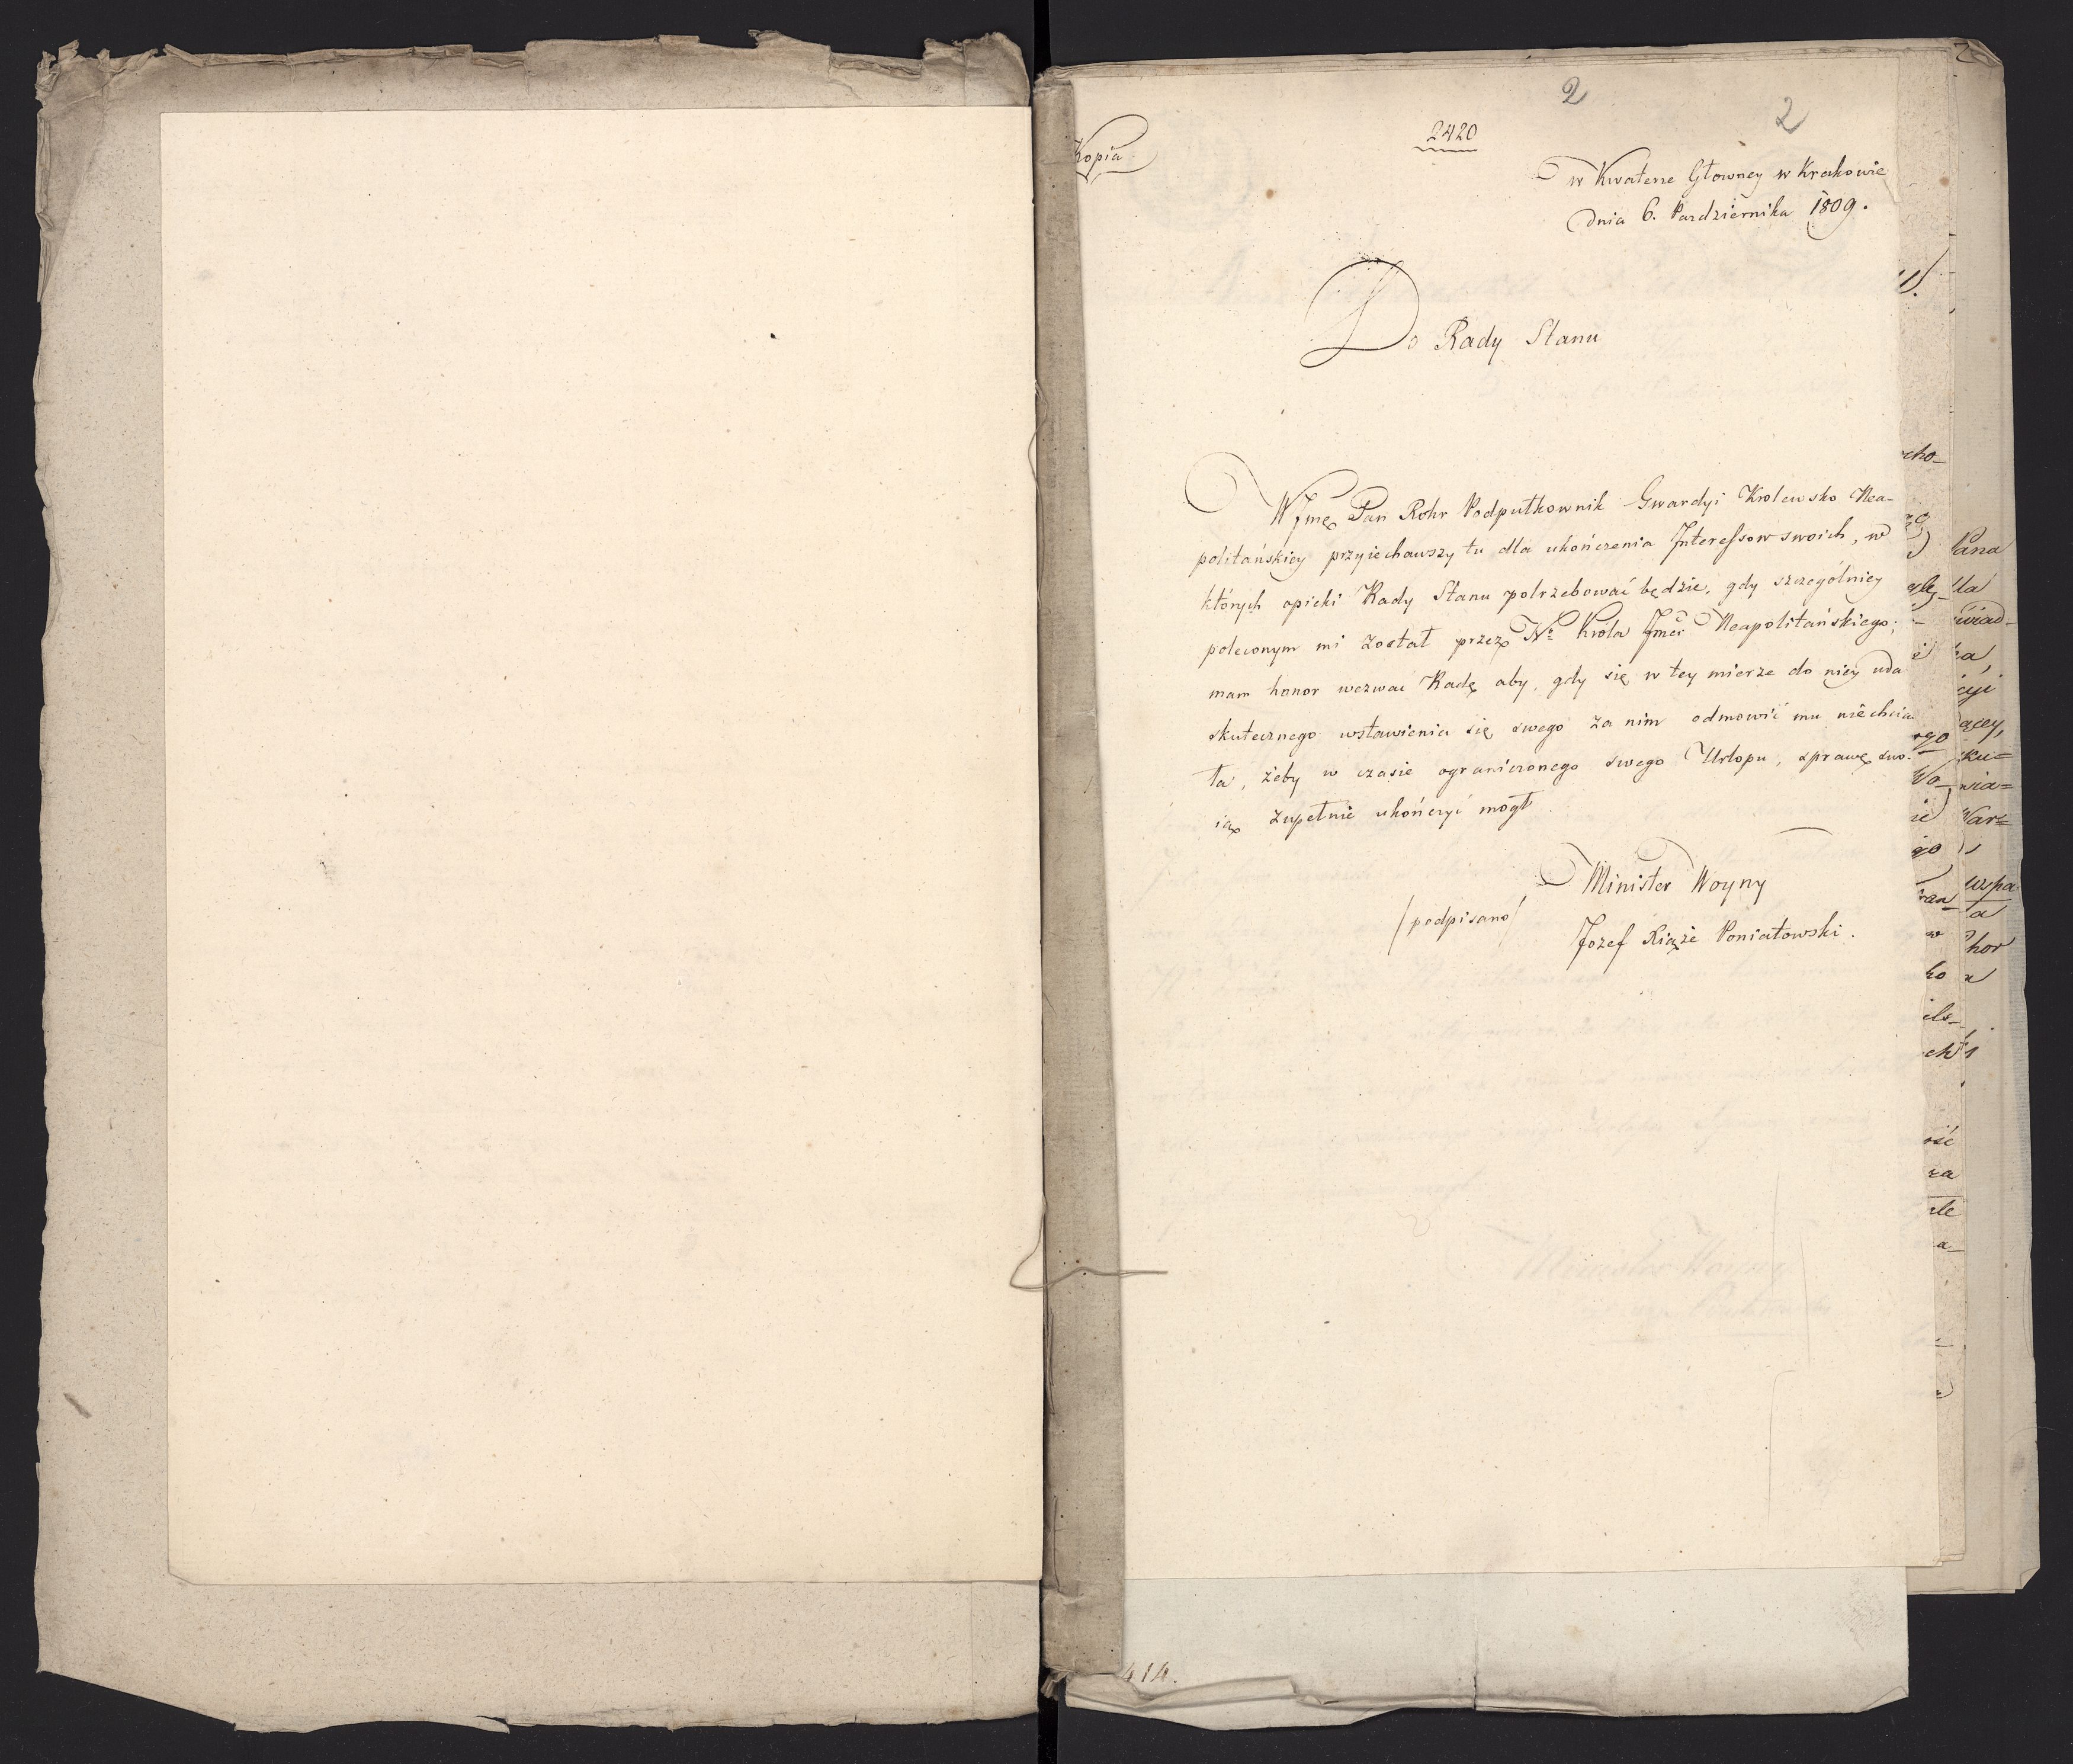 2
2
2
2420
Kopia
w Kwaterze Głowney w Krakowie
Dnia 6. Pazdziernika 1809.
Do Rady Stanu
WJmę Pan Rohr Podpułkownik Gwardyi Krolewsko Nea-
politańskiey przyiechawszy tu dla ukończenia Interessow swoich, w
których opieki Rady Stanu potrzebować będzie, gdy szczególniey
poleconym mi został przez N. Króla Jmci Neapolitańskiego;
mam honor wezwać Radę aby, gdy się w tey mierze do niey uda
skutecznego wstawienia się swego za nim odmowić mu niechcia
ła, żeby w czasie ograniczonego swego Urlopu, sprawę swo-
ię zupełnie ukończyć mogł
Minister Woyny
/podpisano/ Jozef Xiąże Poniatowski.
414.